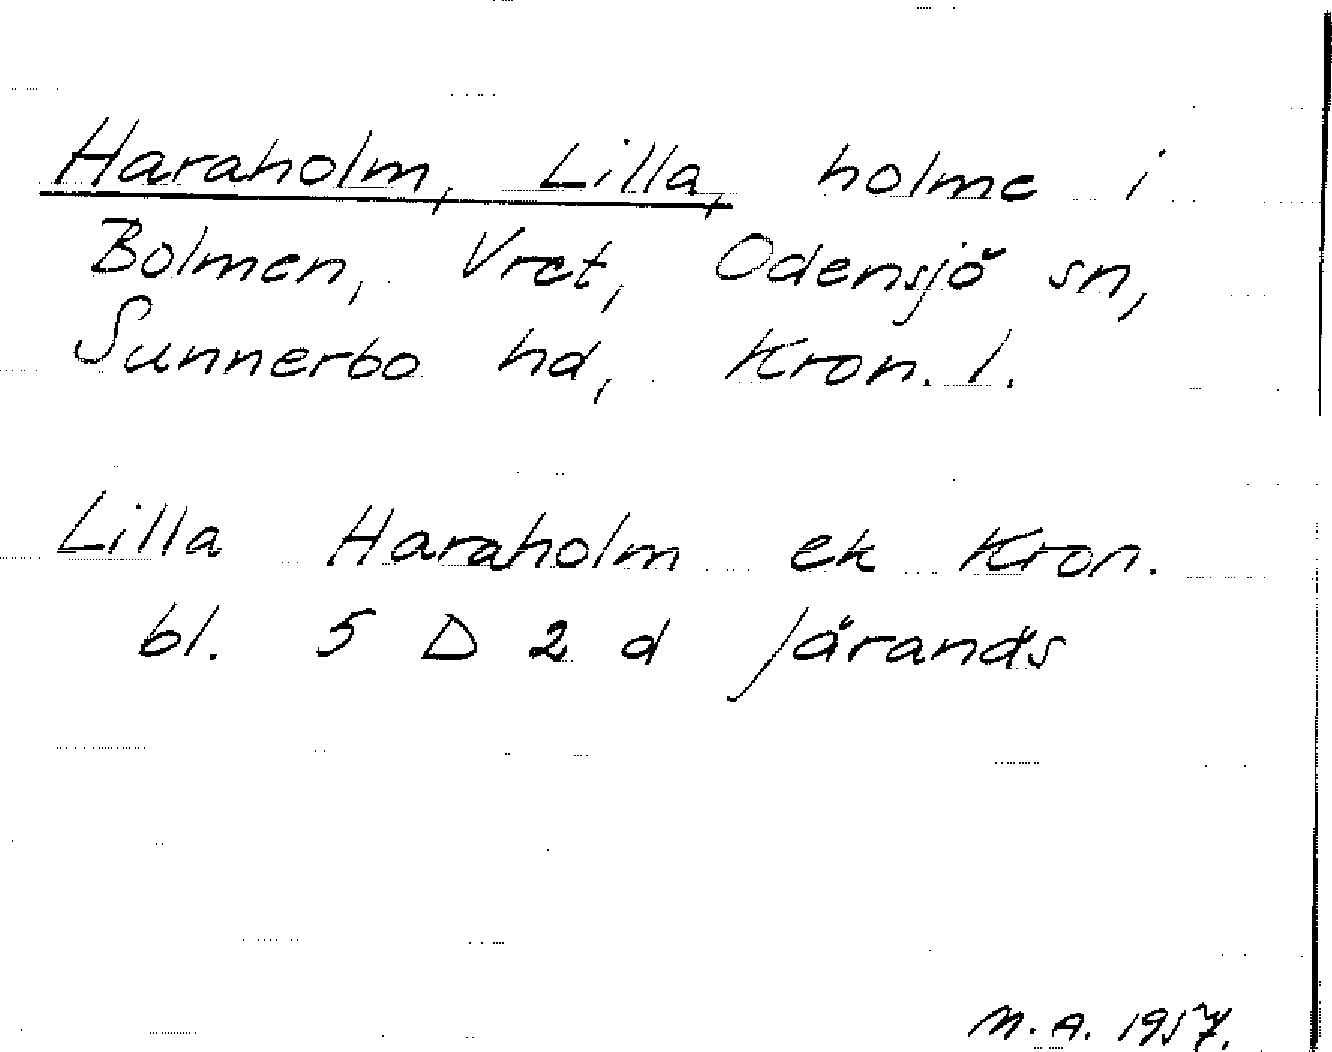 Haraholm, Lilla, holme i
Bolmen, Vret, Odensjö sn,
Sunnerbo hd, Kron. l.
Lilla Haraholm ek Kron.
bl. 5 D 2 d Järanäs
M.A. 1957.